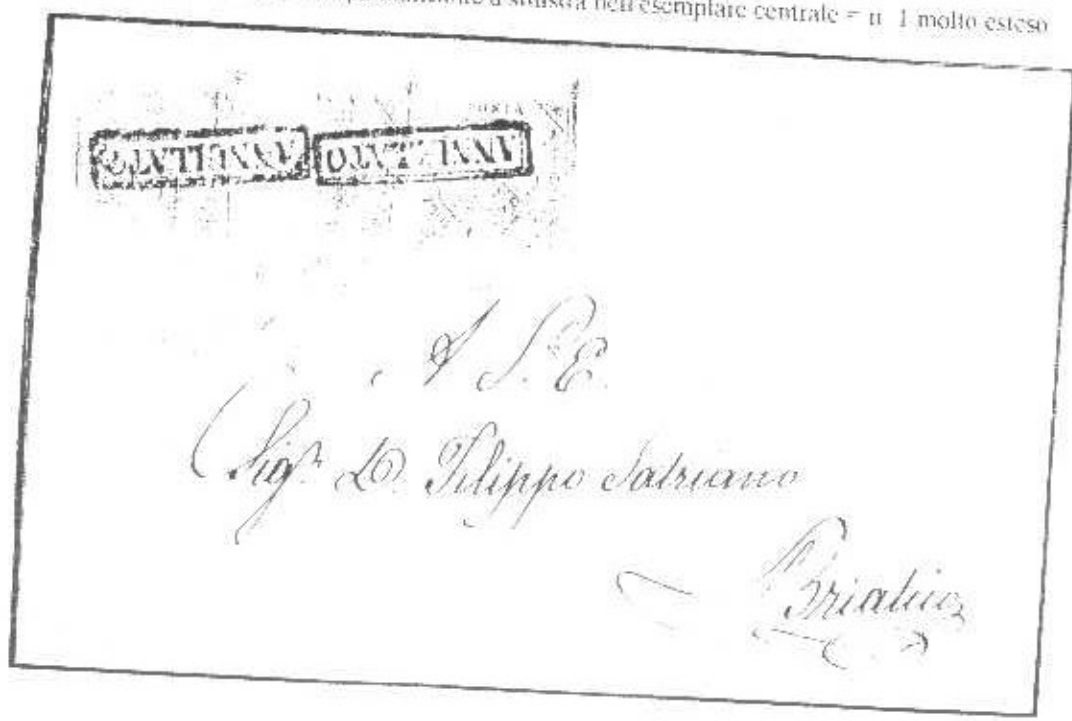 a sinistra nell'esemplare centrale = n 1 molto esteso
POSTA
ANNULLATO ANNULLATO
A S. E.
Sigr D. Filippo Satriano
Briatico